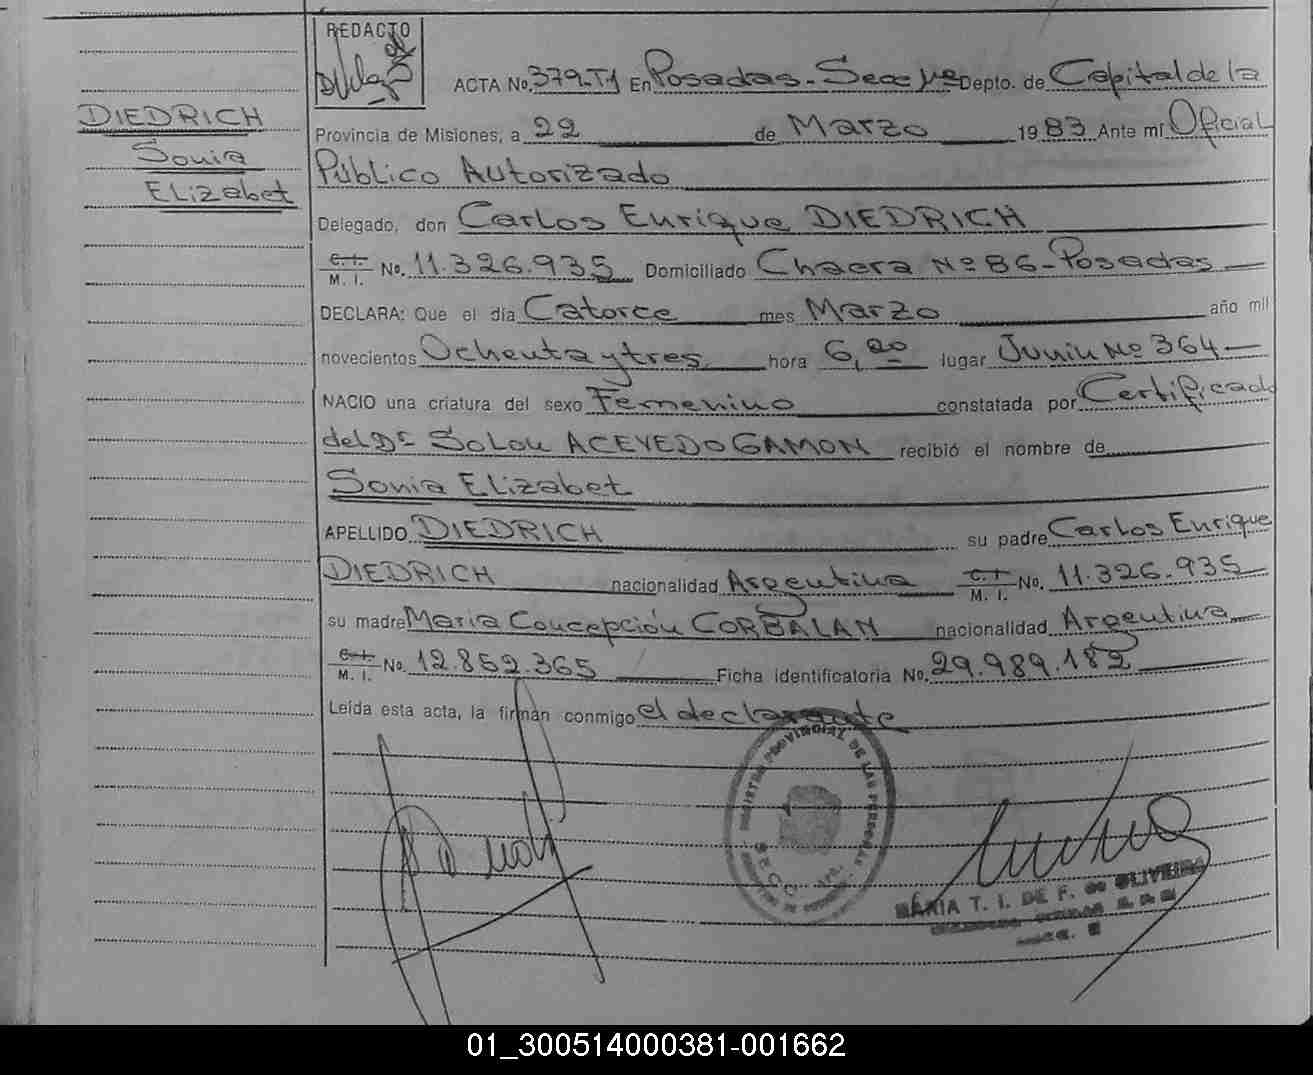 REDACTO
DIEDRICH
Sonia
Elizabet
ACTA No. 379-T1 En Posadas - Depto. de Capital de la
Provincia de Misiones, a 22 de Marzo 1983 Ante mí Oficial
Público Autorizado
Delegado, don Carlos Enrique DIEDRICH
C. I. M. I. No. 11.326.935 Domiciliado Chacra Nº 86 - Posadas
DECLARA: Que el día Catorce mes Marzo año mil
novecientos Ochenta y tres hora 6,20 lugar Junin Nº 364
NACIO una criatura del sexo Femenino constatada por Certificado
del Dr Solon ACEVEDO GAMON recibió el nombre de
Sonia Elizabet
APELLIDO DIEDRICH su padre Carlos Enrique
DIEDRICH nacionalidad Argentina C. I. M. I. No. 11.326.935
su madre Maria Concepción CORBALAN nacionalidad Argentina
C. I. M. I. No. 12.852.365 Ficha identificatoria No. 29.989.182
Leída esta acta, la firman conmigo el declarante
REGISTRO PROVINCIAL DE LAS PERSONAS
MARIA T. I. DE F. de OLIVEIRA
01_300514000381-001662